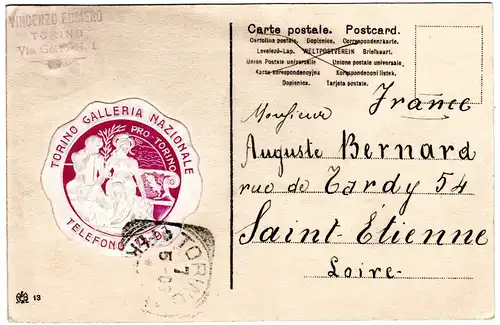 VINCENZO
TORINO
Carte postale. Postcard.
Cartolina postale. Dopisnice. Correspondenzkarte.
Levelező-Lap. WELTPOSTVEREIN Briefkaart.
Union Postale universelle Unione postale universale.
Karta korespondencyjna Korespondenční lístek.
Dopisnica. Tarjeta postal.
France
Monsieur
Auguste Bernard
rue de Tardy 54
Saint-Étienne
Loire
TORINO GALLERIA NAZIONALE
PRO-TORINO
TELEFONO
TORINO
7
13